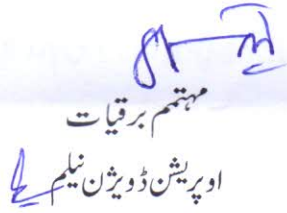 مہتمم برقیات
اوپریشن ڈویژن نیلم